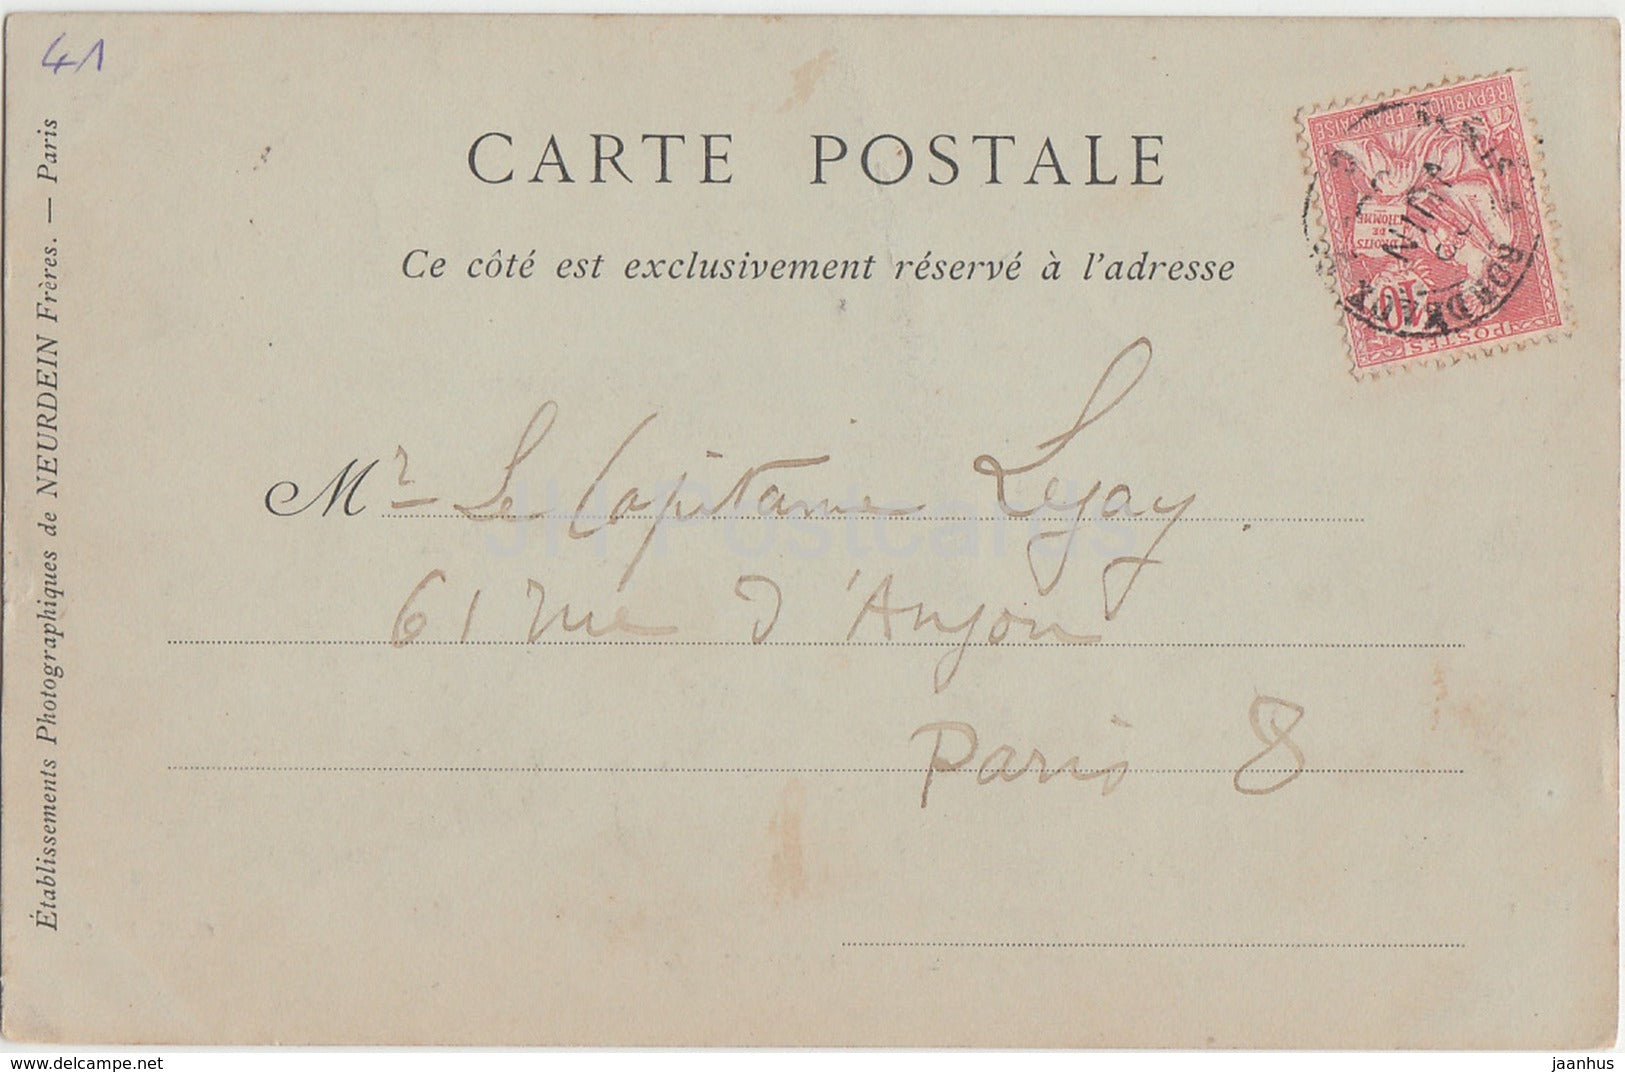 41
CARTE POSTALE
Ce côté est exclusivement réservé à l'adresse
RÉPUBLIQUE FRANÇAISE
DROITS
DE
L'HOMME
10
POSTES
BORDEAUX
JUIN
Mr Le Capitaine Lejay.
61 rue d'Anjou
Paris 8
Établissements Photographiques de NEURDEIN Frères. — Paris
JH Postcards
www.delcampe.net
jaanhus